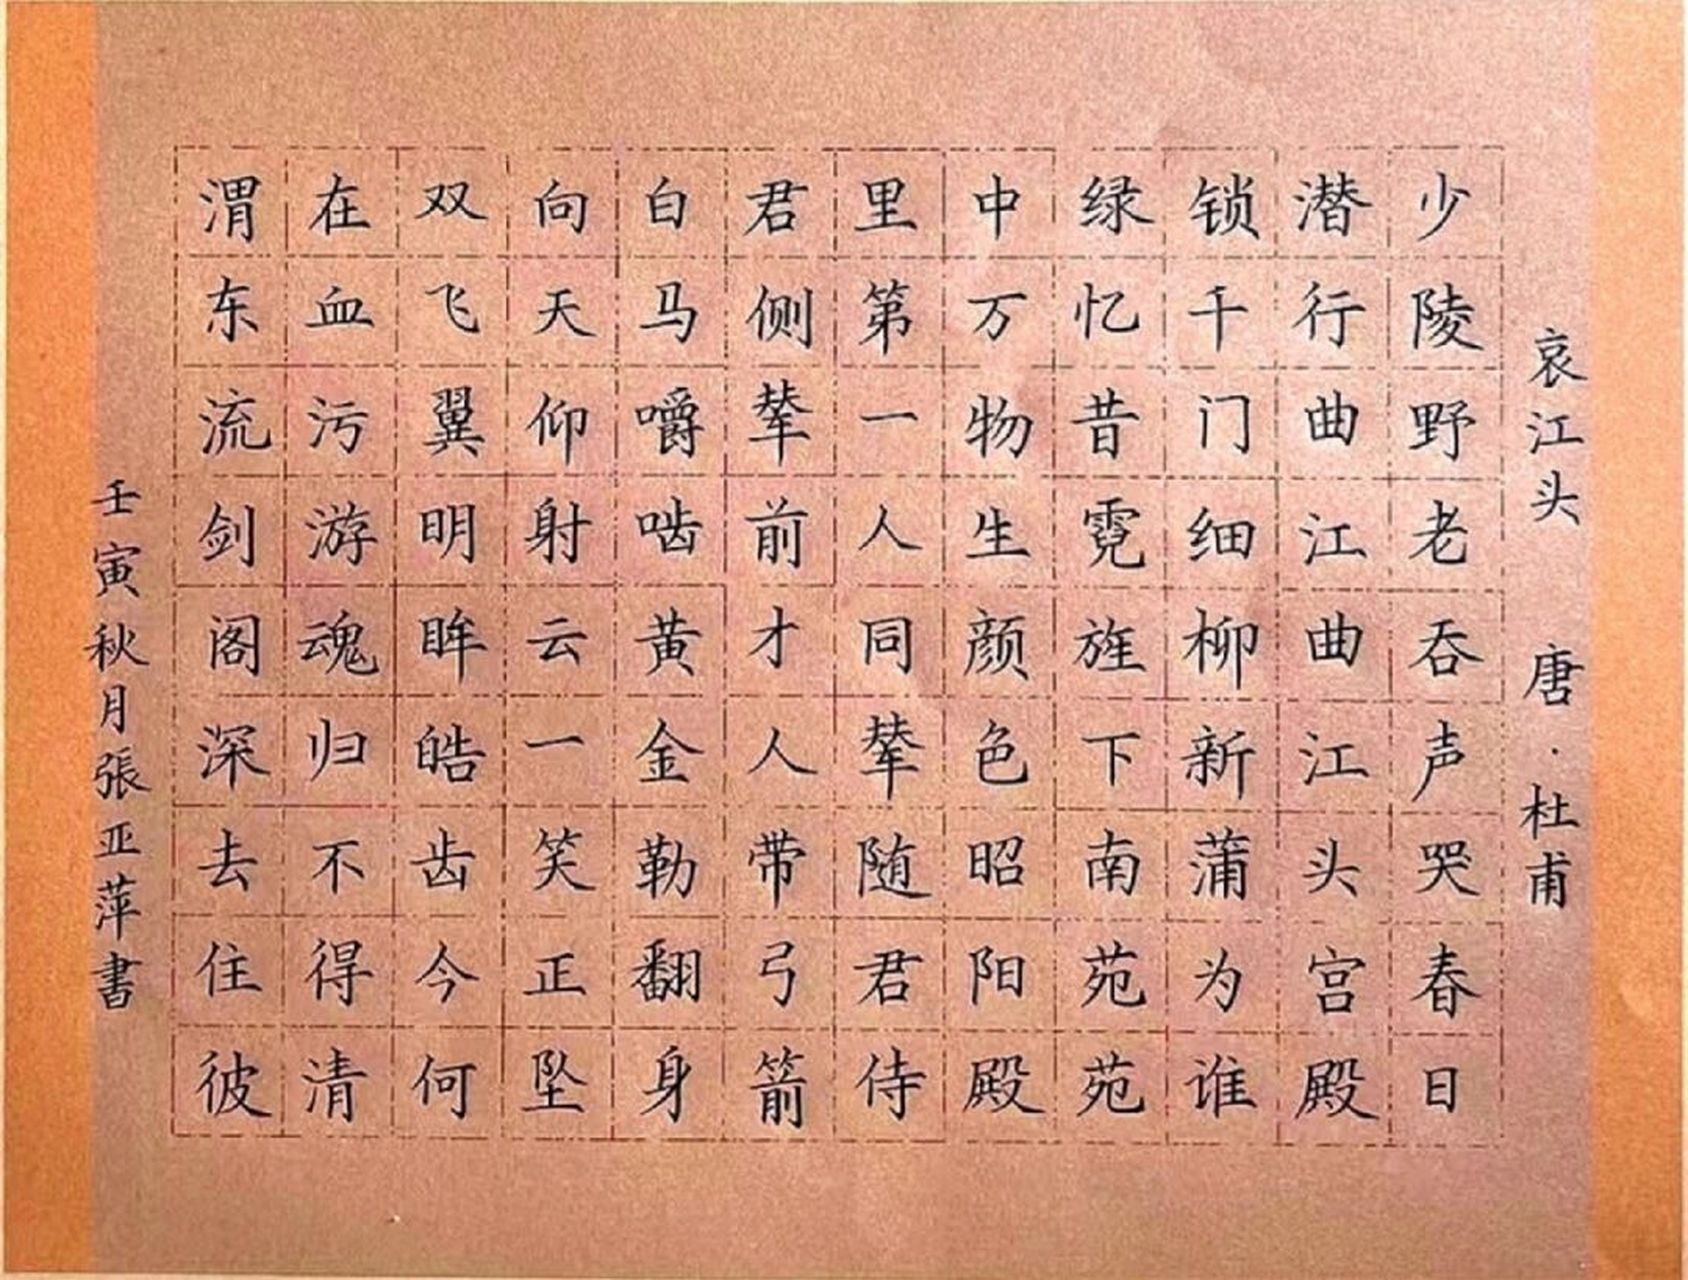 哀江头 唐·杜甫
少陵野老吞声哭春日
潜行曲江曲江头宫殿
锁千门细柳新蒲为谁
绿忆昔霓旌下南苑苑
中万物生颜色昭阳殿
里第一人同辇随君侍
君侧辇前才人带弓箭
白马嚼啮黄金勒翻身
向天仰射云一笑正坠
双飞翼明眸皓齿今何
在血污游魂归不得清
渭东流剑阁深去住彼
壬寅秋月張亚萍書